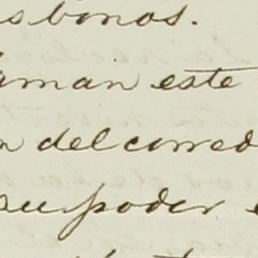 s bonos.
aman este
n del corred
su poder